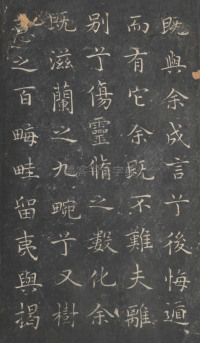 既與余成言兮後悔遁
而有它余既不難夫離
別兮傷靈脩之數化余
既滋蘭之九畹兮又樹
蕙之百畮畦留夷與揭